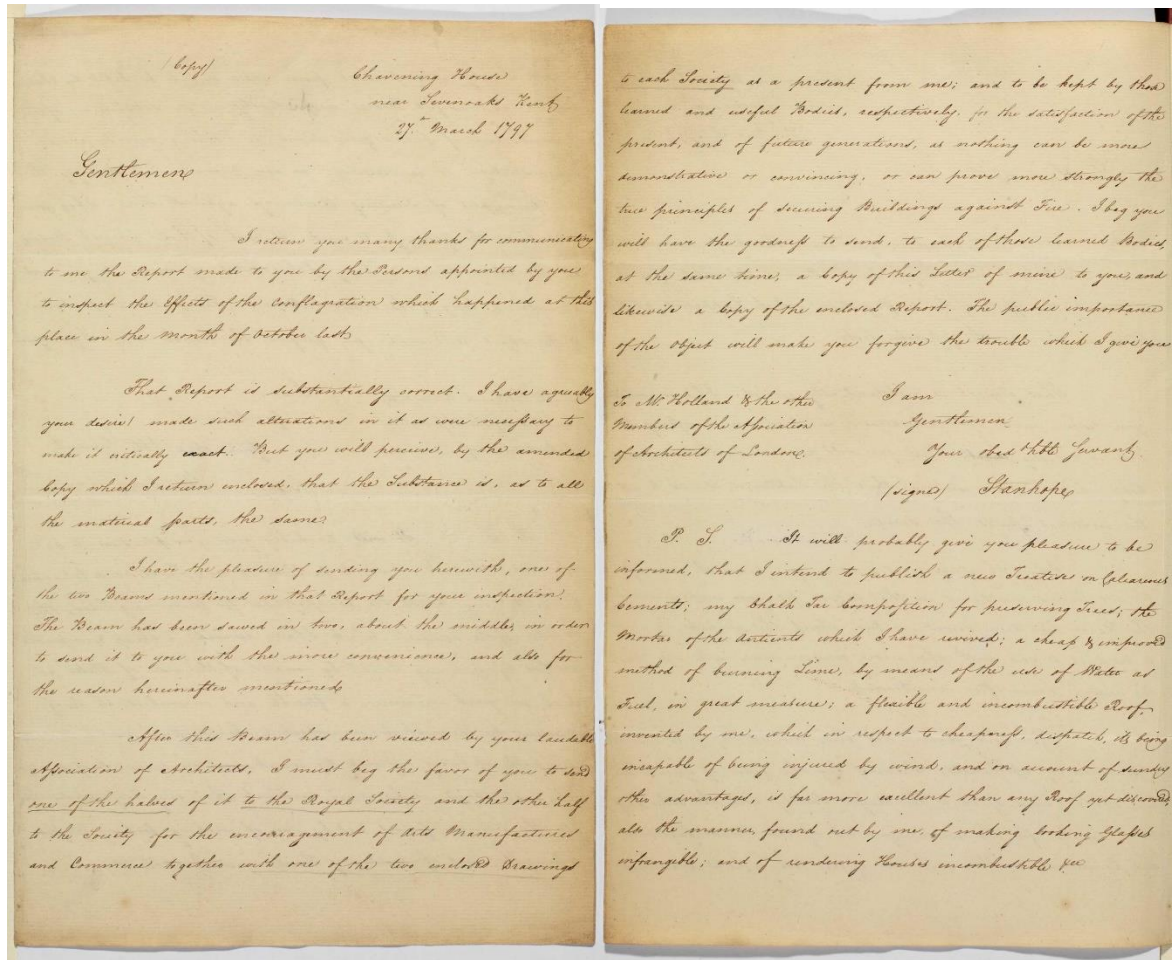 (Copy)
Chevening House
near Sevenoaks Kent
27.th March 1797
Gentlemen
I return you many thanks for communicating
to me the Report made to you by the Persons appointed by you
to inspect the Effects of the Conflagration which happened at this
place in the Month of October last
That Report is substantially correct. I have agreeably
your desire/ made such alterations in it as were necessary to
make it critically exact. But you will perceive, by the amended
Copy which I return enclosed, that the Substance is, as to all
the material parts, the same.
I have the pleasure of sending you herewith, one of
the two Beams mentioned in that Report for your inspection.
The Beam has been sawed in two, about the middle, in order
to send it to you with the more convenience, and also for
the reason hereinafter mentioned
After this Beam has been viewed by your laudable
Association of Architects, I must beg the favor of you to send
one of the halves of it to the Royal Society and the other half
to the Society for the encouragement of Arts Manufactures
and Commerce together with one of the two enclosed Drawings
to each Society as a present from me; and to be kept by those
learned and useful Bodies, respectively, for the satisfaction of the
present, and of future generations, as nothing can be more
demonstrative or convincing, or can prove more strongly the
true principles of securing Buildings against Fire. I beg you
will have the goodness to send, to each of those learned Bodies,
at the same time, a Copy of this Letter of mine to you, and
likewise a Copy of the enclosed Report. The public importance
of the Object will make you forgive the trouble which I give you
To Mr. Holland & the other
Members of the Association
of Architects of London
I am
Gentlemen
Your obed hble Servant
(signed) Stanhope
P. S. It will probably give you pleasure to be
informed, that I intend to publish a new Treatise on Calcareous
Cements; my Chalk Tar Composition for preserving Trees; the
Mortar of the Antients which I have revived; a cheap & improved
method of burning Lime, by means of the use of Water as
Fuel, in great measure; a flexible and incombustible Roof,
invented by me, which in respect to cheapness, dispatch, its being
incapable of being injured by wind, and on account of sundry
other advantages, is far more excellent than any Roof yet discovered,
also the manner, found out by me, of making looking Glasses
infrangible; and of rendering Houses incombustible &c